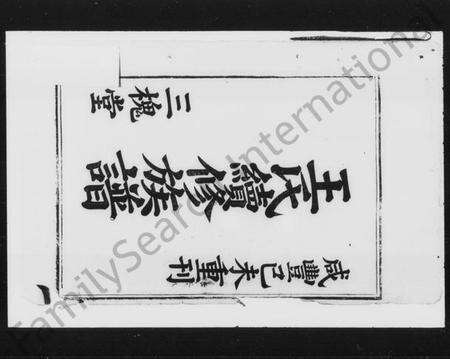 咸豐己未重刊
王氏續修族譜
三槐堂
FamilySearch International